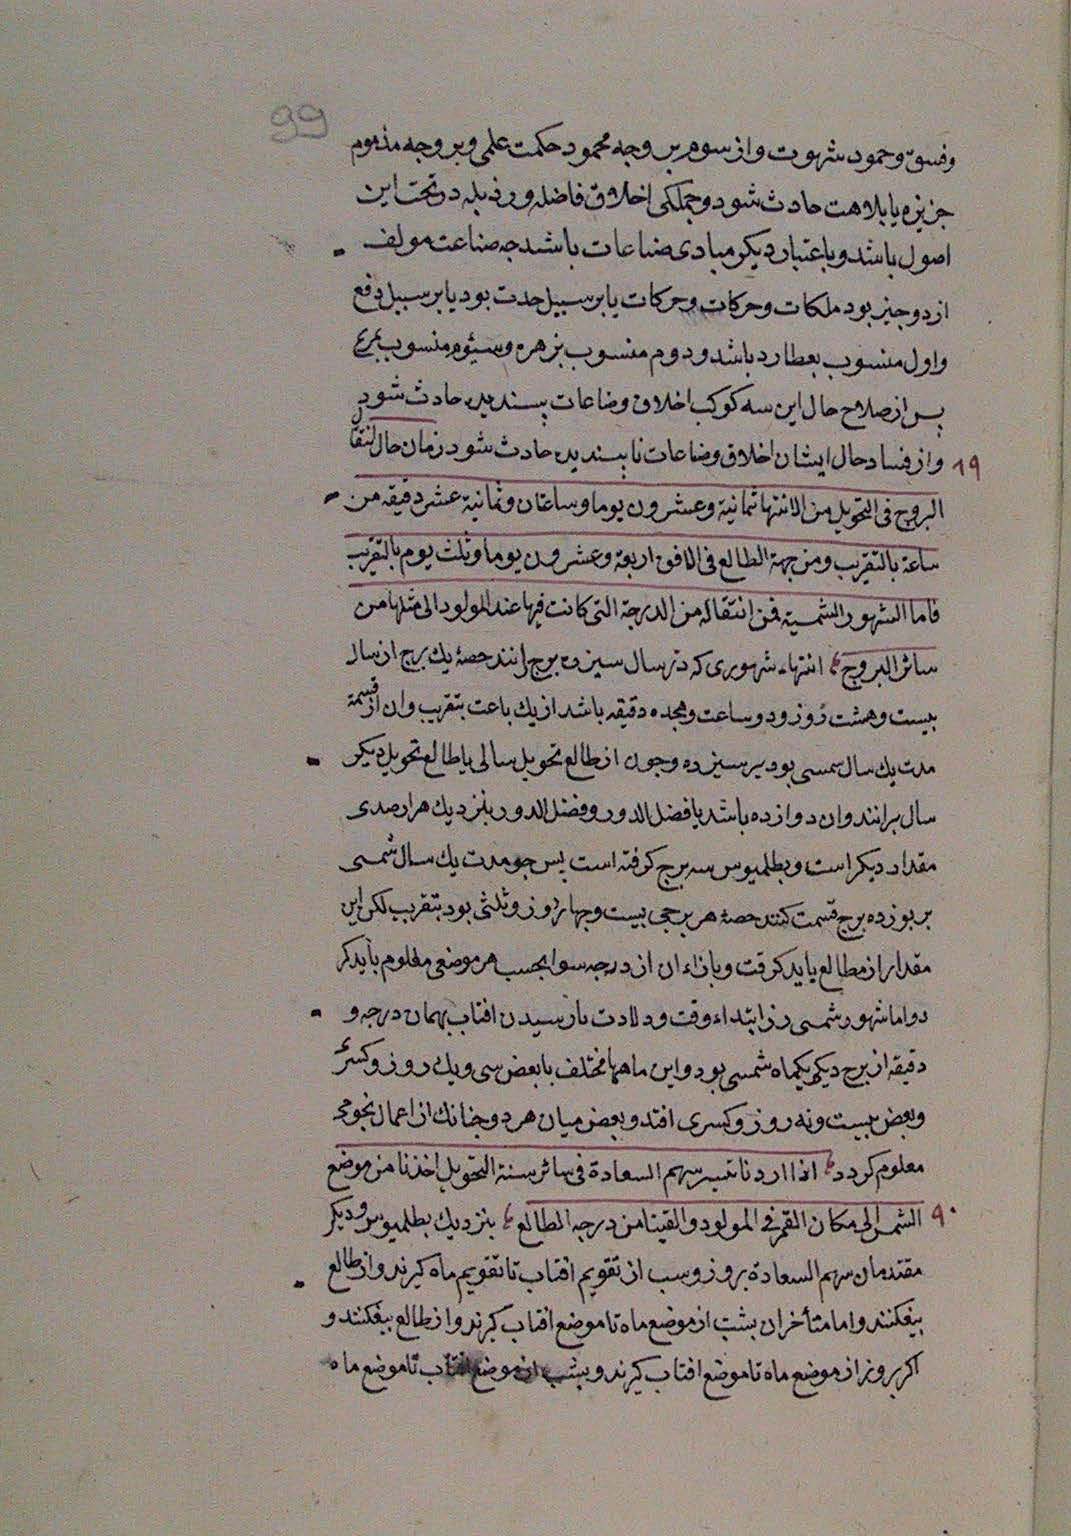 99
وفسق وخمود شهوت واز سوم بر وجه محمود حکمت علمی و بر وجه مذموم
جزیزه یا بلاهت حادث شود وجملکی اخلاق فاضله و رذیله در تحت این
اصول باشد و باعتبار دیکر مبادی صناعات باشد جه صناعت مولف
از دو جیز بود ملکات وحرکات وحرکات یا بر سبیل حدت بود یا بر سبیل دفع
و اول منسوب بعطارد باشد و دوم منسوب بزهره و سیوم منسوب بمریخ
پس از صلاح حال این سه کوکب اخلاق وصناعات پسندیده حادث شود
۸۹ و از فساد حال ایشان اخلاق وصناعات ناپسندیده حادث شود زمان حال انتقال
البروج فی التحویل من الانتها ثمانیة وعشرون یوما وساعتان وثمانیة عشر دقیقه من
ساعة بالتقریب ومن جهة الطالع فی الافق اربعة وعشرون یوما وثلث یوم بالتقریب
فاما الشهور الشمسیة فمن انتقاله من الدرجة التی کانت فیها عند المولود الی مثلها من
سائر البروج انتهاء شهوری که در سال سیزده برج رانند حصهٔ یک برج از سال
بیست وهشت روز و دو ساعت و هجده دقیقه باشد از یک ساعت بتقریب وان از قسمة
مدت یک سال شمسی بود بر سیزده وجون از طالع تحویل سالی با طالع تحویل دیکر
سال برانند وان دوازده باشد با فضل الدور وفضل الدور بنزدیک هر ارصدی
مقدار دیکر است وبطلمیوس سه برج کرفته است پس جو مدت یک سال شمسی
بر بوزده برج قسمت کنند حصهٔ هر برجی بیست وجهار روز وثلثی بود بتقریب لکن این
مقدار از مطالع باید کرفت وبازاء ان از درجه سوا بحسب هر موضعی معلوم باید کر
د واما شهور شمسی از ابتداء وقت ولادت تا رسیدن افتاب بهمان درجه و
دقیقه از برج دیکر یکماه شمسی بود واین ماهها مختلف با بعض سی ویک روز وکسری
وبعض بیست ونه روز وکسری افتد وبعض میان هر دو جنانک از اعمال نجومی
معلوم کردد اذا اردنا تسییر سهم السعادة فی سائر سنة التحویل اخذنا من موضع
۹۰ الشمس الی مکان القمر فی المولود والقینا من درجه الطالع بنزدیک بطلمیوس ودیکر
مقتدمان سهم السعادة بروز وشب از تقویم افتاب تا تقویم ماه کیرند واز طالع
بیفکنند واما متأخران بشب از موضع ماه تا موضع افتاب کیرند واز طالع بیفکنند و
اکر بروز از موضع ماه تا موضع افتاب کیرند وبشب از موضع افتاب تا موضع ماه